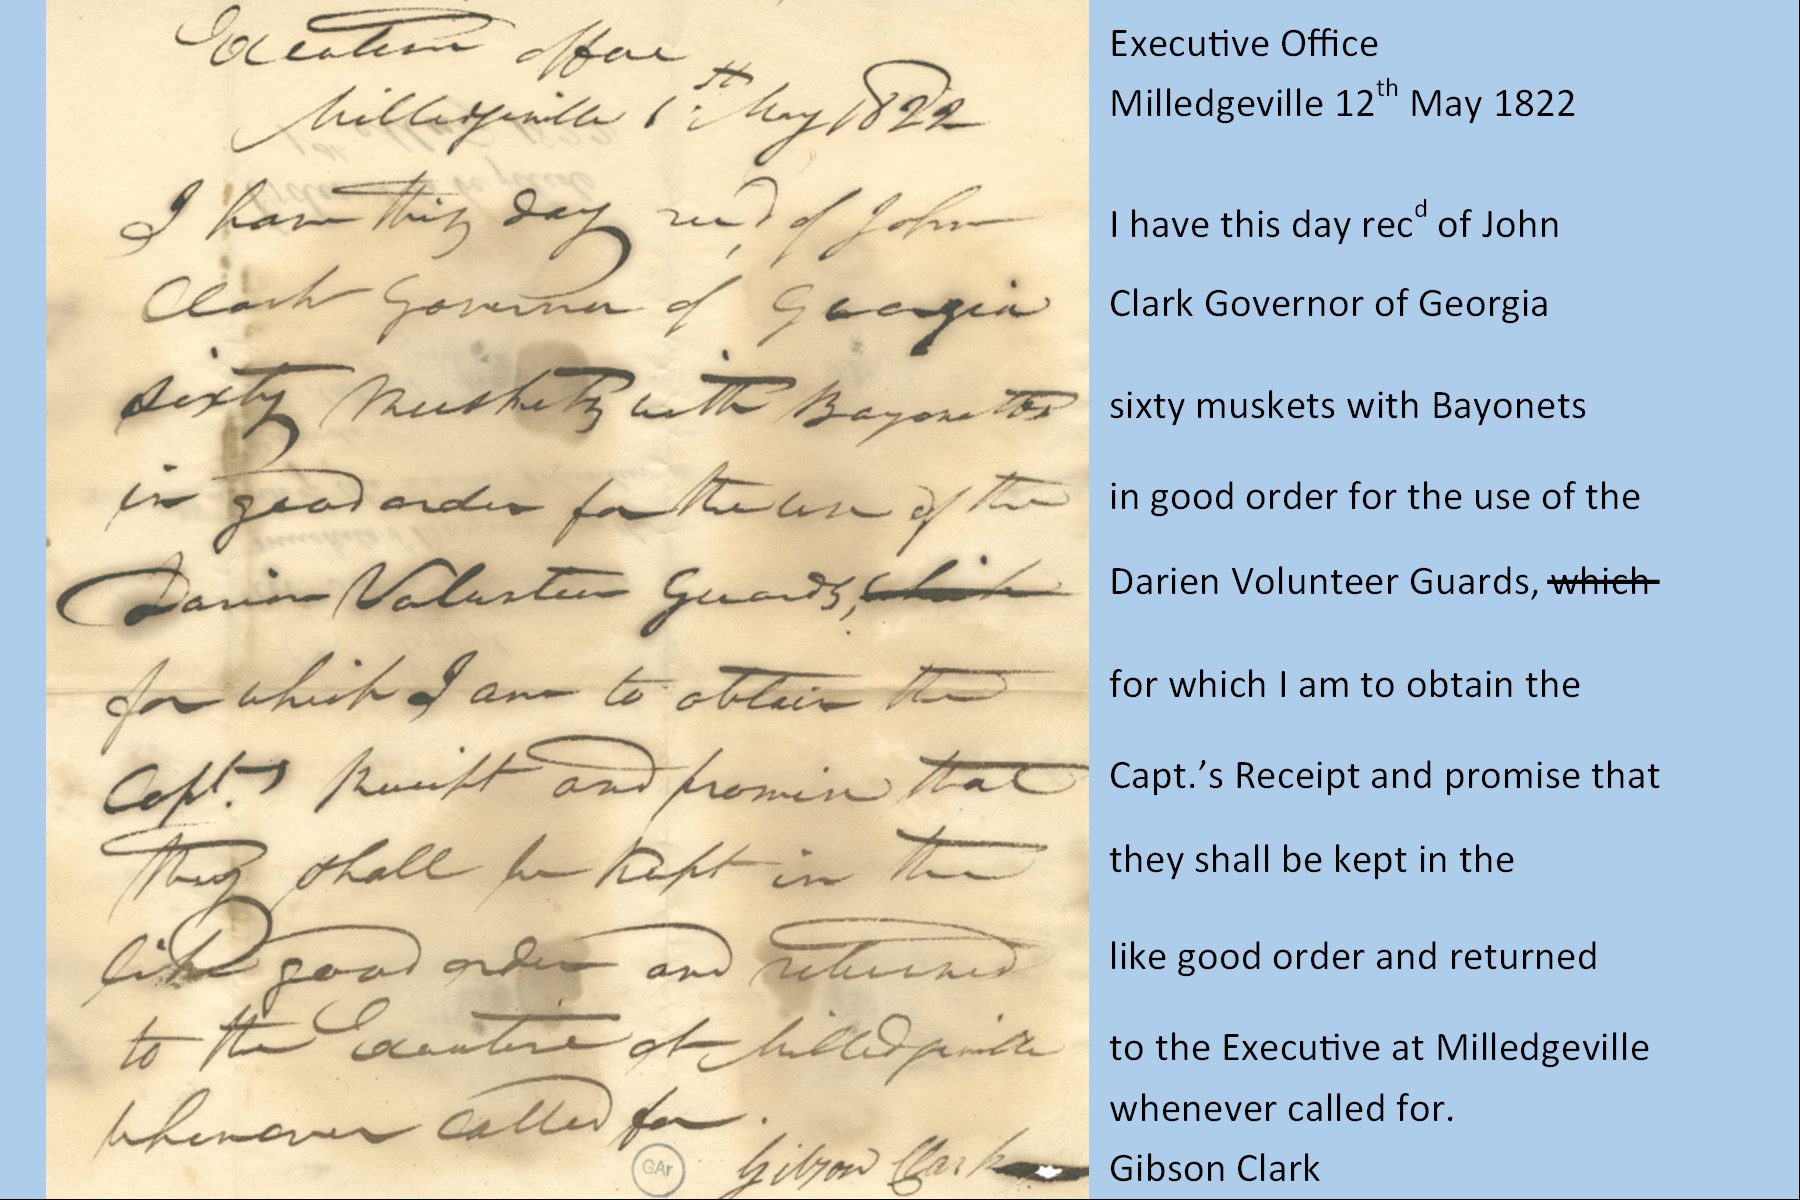 Executive Office
Milledgeville 1st May 1822
I have this day recd of John
Clark Governor of Georgia
sixty Muskets with Bayonets
in good order for the use of the
Darien Volunteer Guards, which
for which I am to obtain the
Capt.s Receipt and promise that
they shall be kept in the
like good order and returned
to the Executive at Milledgeville
whenever called for.
Gibson Clark
GAr
Executive Office
Milledgeville 12th May 1822
I have this day recd of John
Clark Governor of Georgia
sixty muskets with Bayonets
in good order for the use of the
Darien Volunteer Guards, which
for which I am to obtain the
Capt.’s Receipt and promise that
they shall be kept in the
like good order and returned
to the Executive at Milledgeville
whenever called for.
Gibson Clark